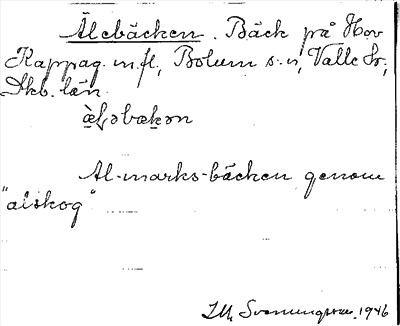 Älebäcken. Bäck på Hov
Kappag. m.fl., Bolum s:n, Valle hr,
Skb. län.
Al-marks-bäcken genom
"alskog"
Svenungsson 1946